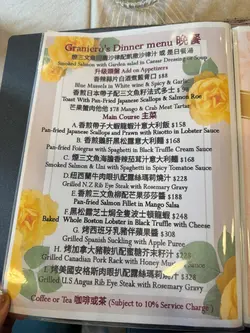 Graniero's Dinner menu 晚餐
煙三文魚田園沙律配凱撒沙律汁 或 是日餐湯
Smoked Salmon with Garden salad in Caesar Dressing or Soup
升級頭盤 Add on Appetizers
Blue Mussels in White wine & Spicy & Garlic
Toast With Pan-fried Japanese Scallops & Salmon Roe
$78 Mango & Crab Meat Tartar
Main Course 主菜
A. 香煎帶子大蝦龍蝦汁意大利飯 $158
Pan-fried Japanese Scallops and Prawn with Risotto in Lobster Sauce
B. 香煎鵝肝黑松露意大利麵 $168
Pan-fried Foiegras with Spaghetti in Black Truffle Cream Sauce
C. 煙三文魚海膽香辣茄茸汁意大利麵 $168
Smoked Salmon & Uni with Spaghetti in Spicy Tomato Sauce
D. 紐西蘭牛肉眼扒配露絲瑪莉燒汁 $228
Grilled N.Z Rib Eye Steak with Rosemary Gravy
E. 香煎三文魚柳配芒果莎莎醬 $188
Pan-fried Salmon Fillet in Mango Salsa
F. 黑松露芝士焗全隻波士頓龍蝦 $248
Baked Whole Boston Lobster in Black Truffle with Cheese
G. 烤西班牙乳豬伴蘋果醬 $308
Grilled Spanish Suckling with Apple Puree
Grilled Canadian Pork Rack with Honey
I. 烤美國安格斯肉眼扒配露絲瑪莉燒汁 $328
Grilled U.S Angus Rib Eye Steak with Rosemary Gravy
Coffee or Tea 咖啡或茶 (Subject to 10% Service Charge)